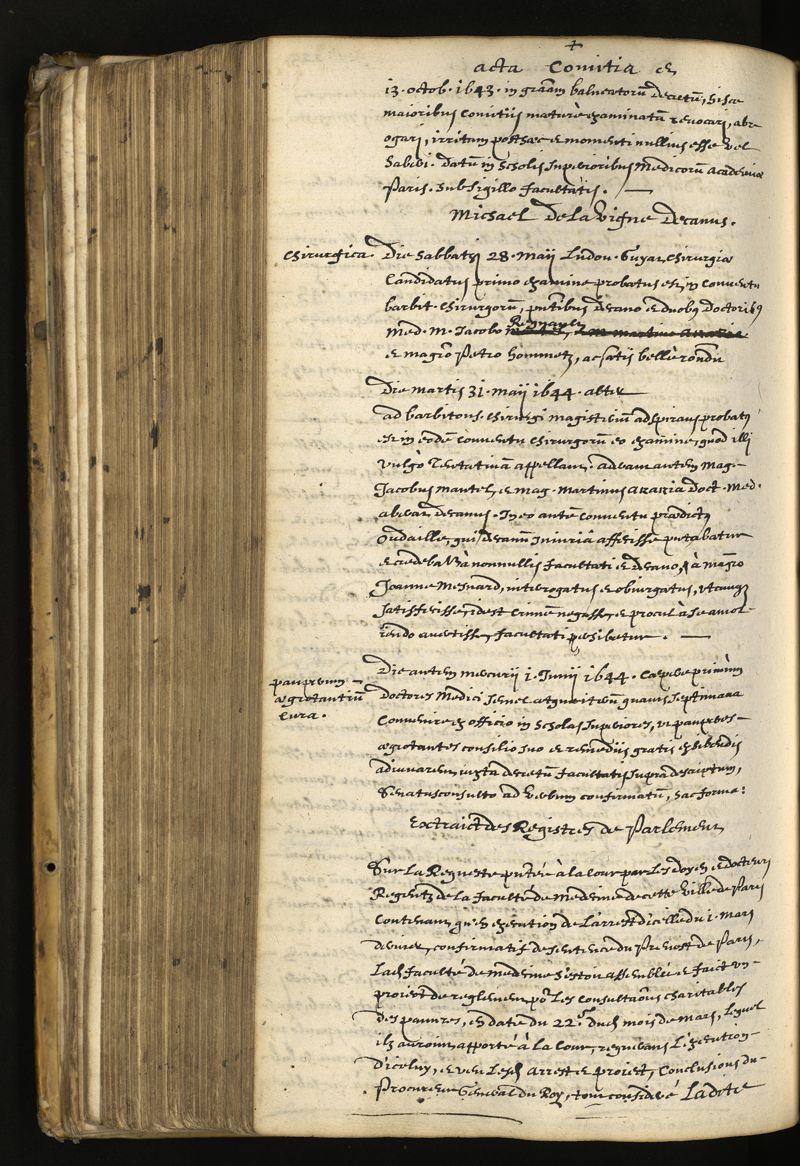 acta Comitia et
13. octob. 1643. in gratiam balneatorum decretum, hisce
maioribus Comitiis maturè examinatum revocari, abro
ogari, irritum posthac et momenti nullius esse vel
haberi. datum in scholis superioribus medicorum academiæ
Paris. sub sigillo facultatis.
Michael de la Vigne decanus.
Chirurgica. Die Sabbathi 28. Maij Ludov. Guyar, chirurgiæ
Candidatus primo examine probatus est, in Conventu
barbit. chirurgorum, pñtibus decano et duobus doctoribus
med. M. Jacobo Regnault,
et magrô Petro hommetz, ac satis bellè rondit
Die martis 31. maij 1644. alter
ad barbitons. chirurgi magisterium adspirans probatus
est in eodẽ conventu chirurgorum eo examine, quod illi
vulgò Tentativam appellant. aderant autem Mag.
Jacobus mantel, et mag. Martinus akakia doct. med.
aberat decanus. In eo autẽ conventu prædictus
oudaille, qui decanũ iniuriâ affecisse putabatur
à nonnullis facultati et decano, à magrõ
Joanne Mesnard, interrogatus et obiurgatus, utcunque
satisfecisse, id est crimen negasse, et procul à se amol-
iendo avertisse, facultati perhibetur.
pauperum
ægrotantiũ
cura.
Die autem mercurii 1. Junij 1644. cœpere primùm
doctores Medici semel atque iterũ quavis septimana
convenire ex officio in scholas superiores, ut pauperes
ægrotantes consilio suo et remediis gratis exhibendis
adiuvarent, iuxta decretũ facultatis supra descriptum,
Senatusconsulto ad verbum confirmatũ, hac forma:
Extraict des Registres de Parlement
Sur la Requeste pñtée à la cour par les doyen et docteurs
Regentz de la faculté de medecine de cette ville de Paris
Contenant, qu'en execution de l'arrest d'icelle du 1. Mars
dernier, confirmatif de sentence du Prevost de Paris,
Lad. faculté de medecine s'estoit assemblée et faict un
proiect de reglement po.r les consultãons charitables
des pauvres, en date du 22.e dud. mois de mars, lequel
ilz auroient apporté à la cour, requerans l'execution
d'iceluy, et veu lesd. arrest et proiect, Conclusions du
Procureur General du Roy, tout consideré Ladite